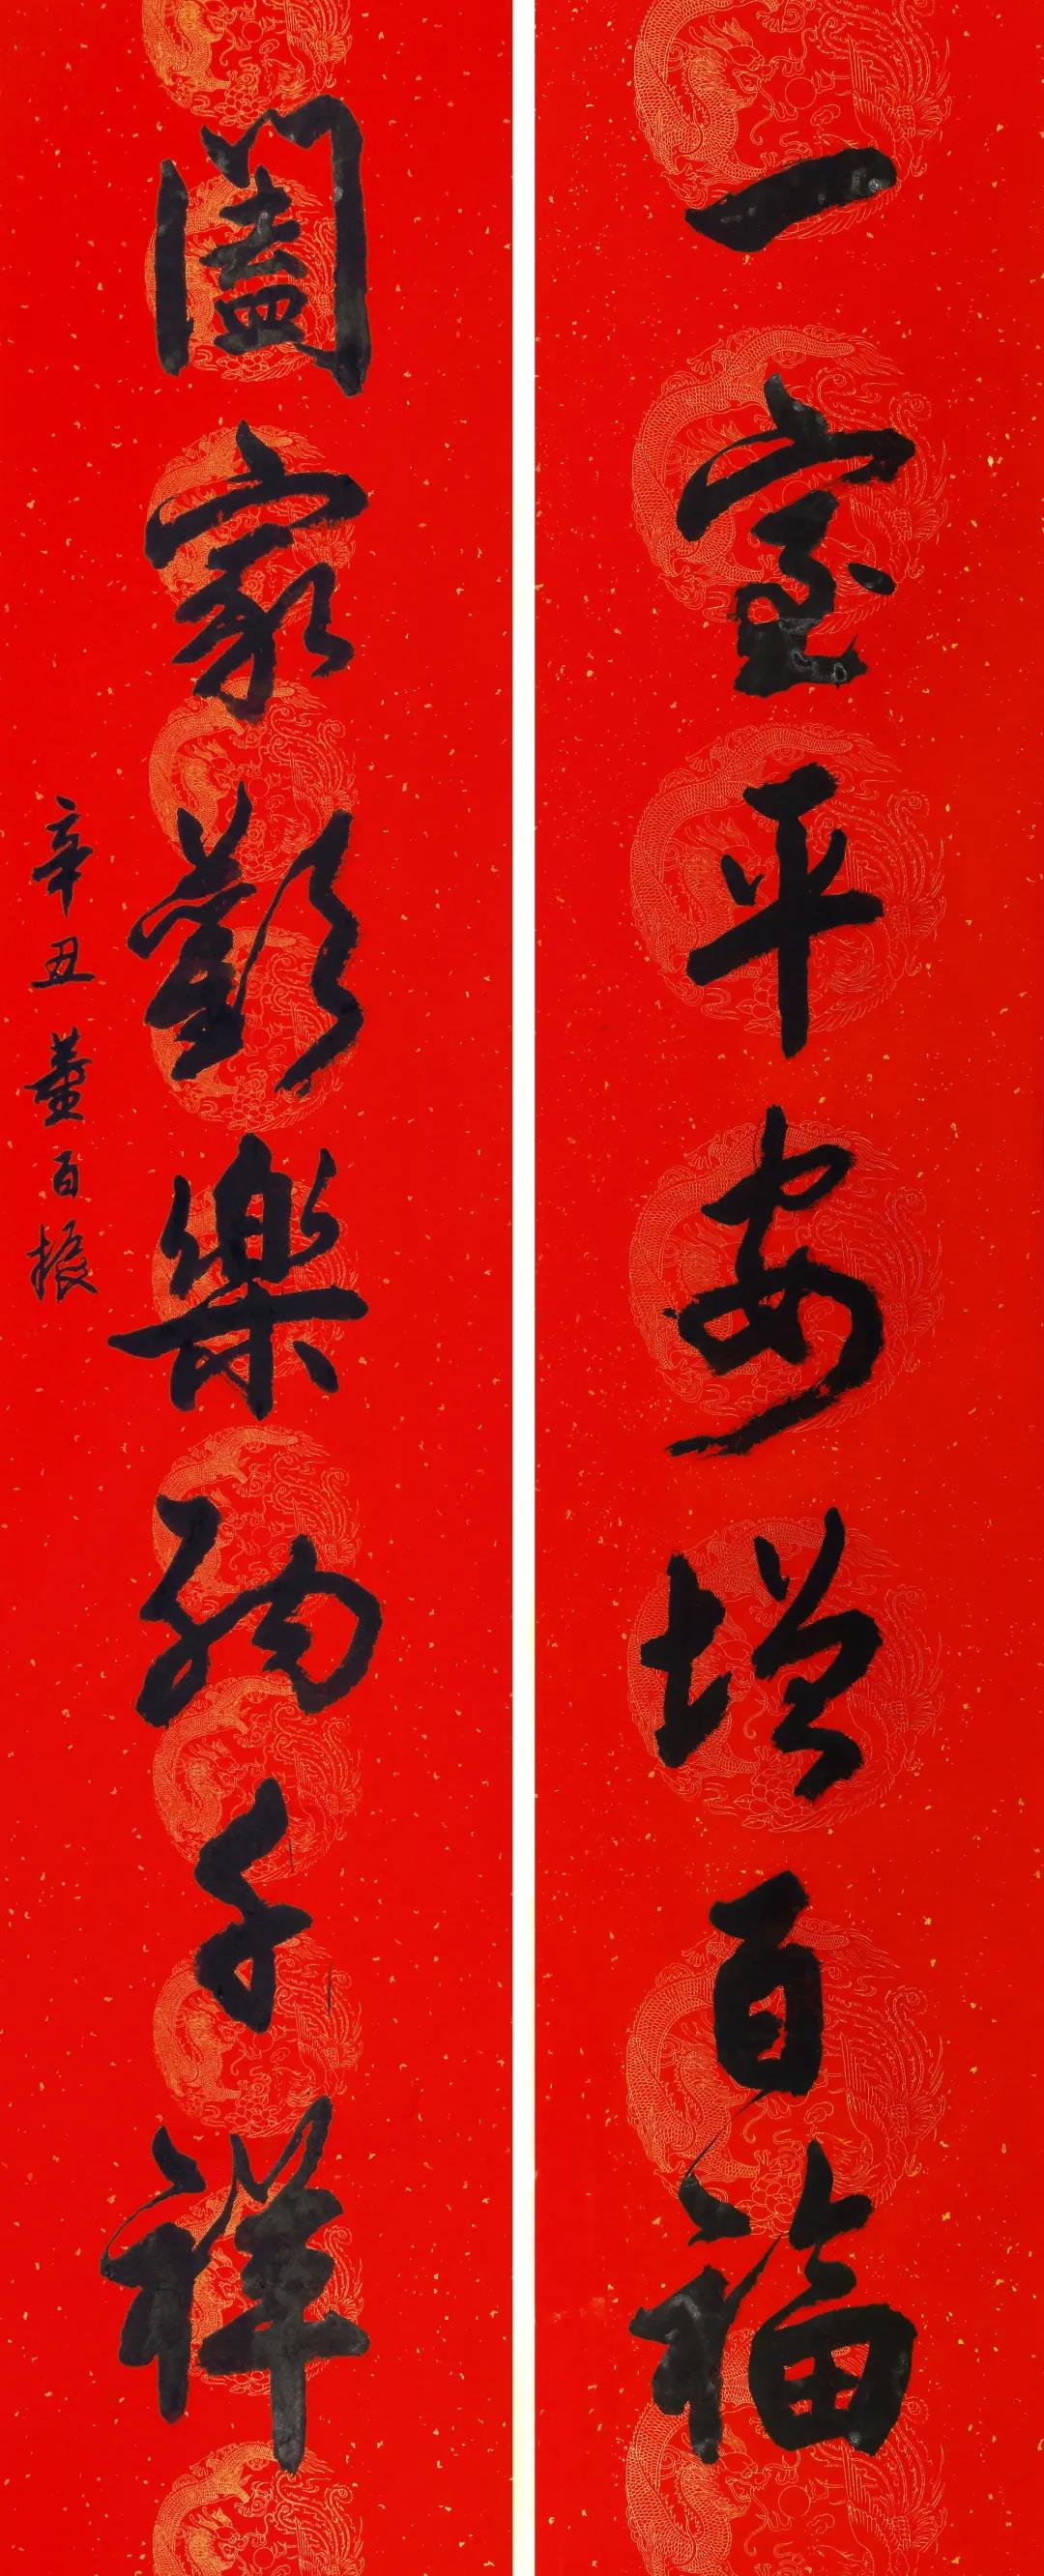 一室平安增百福
阖家歡樂納千祥
辛丑 董百振